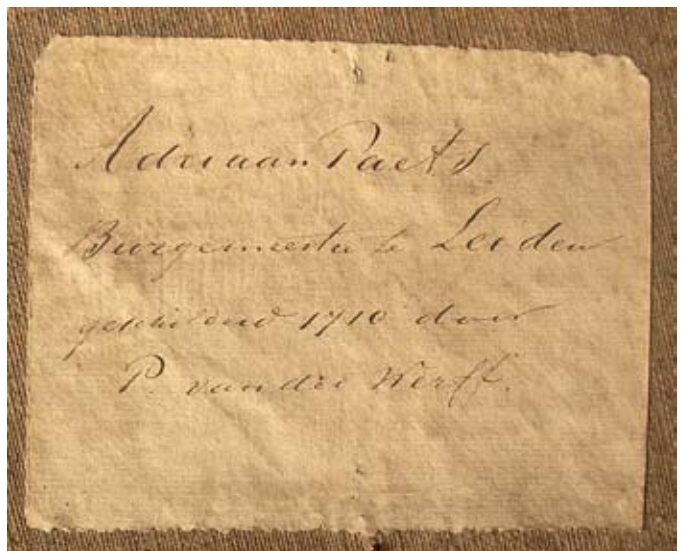 Adriaan Paets
Burgemeester te Leiden
geschilderd 1710 door
P. van der Werff.